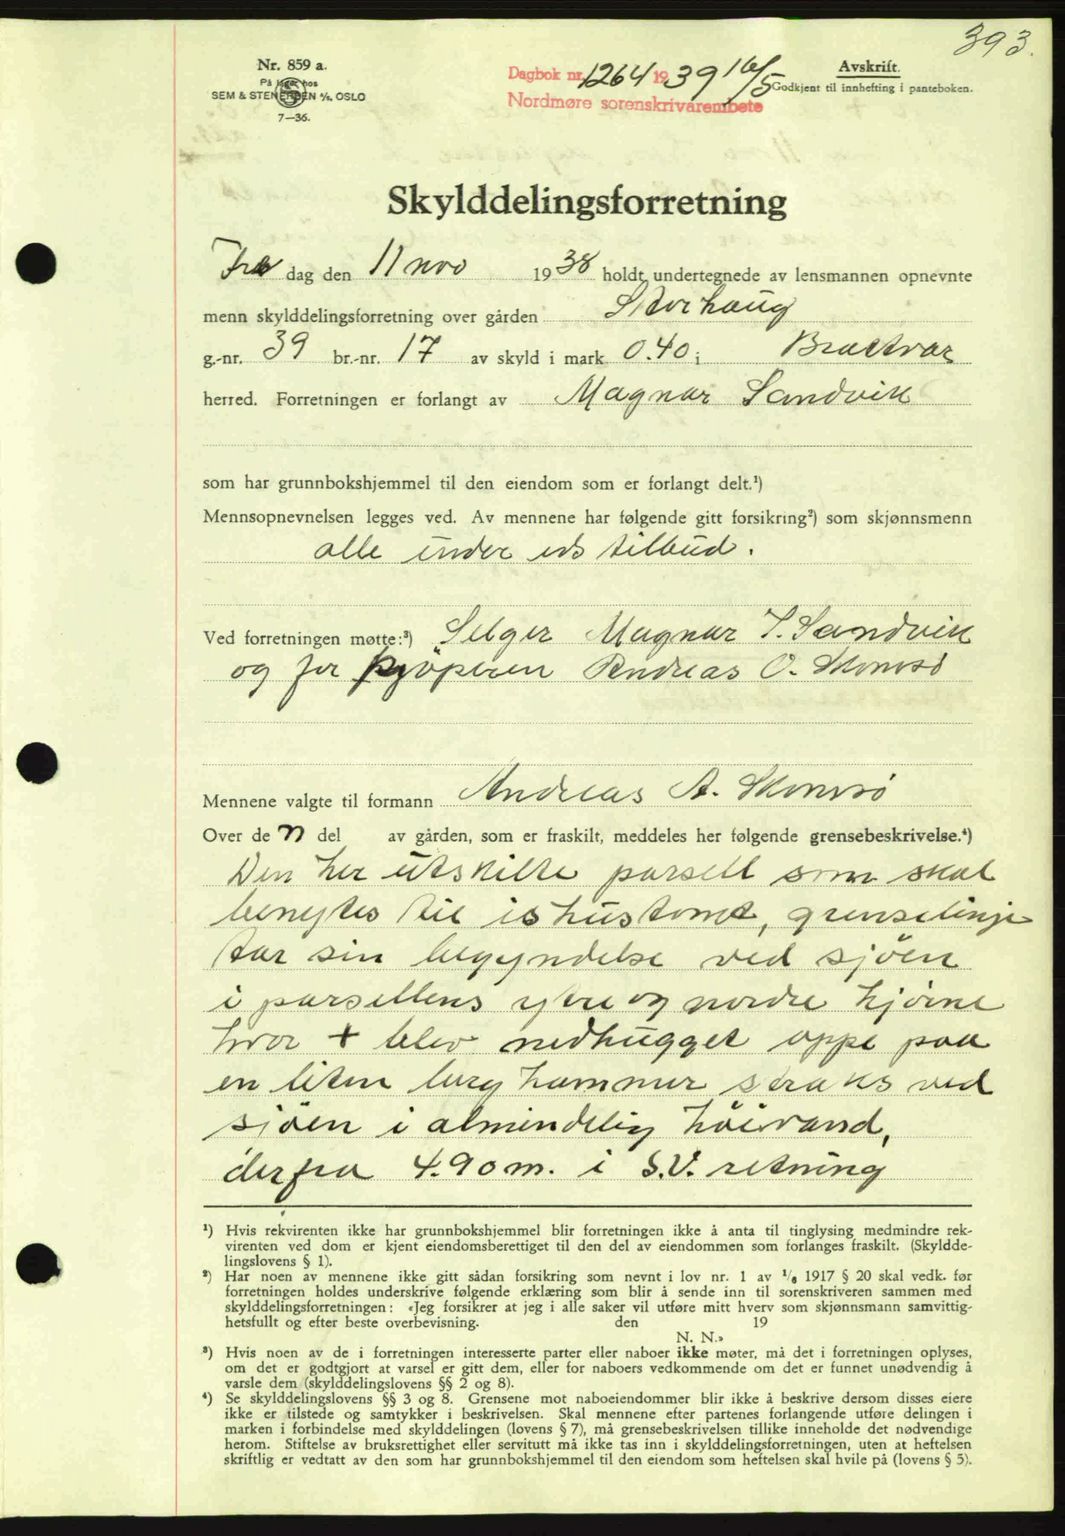 393.
Nr. 859 a.
På lager hos
SEM & STENERSEN A/S. OSLO
7—36.
Dagbok nr. 1264 1939 16/5
Nordmøre sorenskrivarembete
Avskrift.
Godkjent til innhefting i panteboken.
Skylddelingsforretning
Fre dag den 11 nov 1938 holdt undertegnede av lensmannen opnevnte
menn skylddelingsforretning over gården Storhaug
g.-nr. 39 br.-nr. 17 av skyld i mark 0.40 i Brattvær
herred. Forretningen er forlangt av Magnar Sandvik
som har grunnbokshjemmel til den eiendom som er forlangt delt.¹)
Mennsopnevnelsen legges ved. Av mennene har følgende gitt forsikring²) som skjønnsmenn
alle under eds tilbud.
Ved forretningen møtte:³) Selger Magnar T. Sandvik
og for kjøperen Andreas O. Skomsø
Mennene valgte til formann Andreas A. Skomsø
Over de n del av gården, som er fraskilt, meddeles her følgende grensebeskrivelse.⁴)
Den her utskilte parsell som skal
benyttes til ishustomt, grenselinje
tar sin begyndelse ved sjöen
i parsellens ytre og nordre hjörne
hvor + blev nedhugget oppe paa
en liten berg hammer straks ved
sjöen i almindelig höivand,
derfra 4.90 m. i S.V. retning
¹) Hvis rekvirenten ikke har grunnbokshjemmel blir forretningen ikke å anta til tinglysing medmindre rek-
virenten ved dom er kjent eiendomsberettiget til den del av eiendommen som forlanges fraskilt. (Skyldde-
lingslovens § 1).
²) Har noen av mennene ikke gitt sådan forsikring som nevnt i lov nr. 1 av 1/6 1917 § 20 skal vedk. før
forretningen holdes underskrive følgende erklæring som blir å sende inn til sorenskriveren sammen med
skylddelingsforretningen: «Jeg forsikrer at jeg i alle saker vil utføre mitt hverv som skjønnsmann samvittig-
hetsfullt og efter beste overbevisning. den 19
N. N.»
³) Hvis noen av de i forretningen interesserte parter eller naboer ikke møter, må det i forretningen oplyses,
om det er godtgjort at varsel er gitt dem, eller for naboers vedkommende om det er funnet unødvendig å
varsle dem (skylddelingslovens §§ 2 og 8).
⁴) Se skylddelingslovens §§ 3 og 8. Grensene mot naboeiendommer blir ikke å beskrive dersom disses eiere
ikke er tilstede og samtykker i beskrivelsen. Skal mennene efter partenes forlangende utføre delingen i
marken i forbindelse med skylddelingen (lovens § 7), må grensebeskrivelsen tillike inneholde det nødvendige
herom. Stiftelse av bruksrettighet eller servitutt må ikke tas inn i skylddelingsforretningen, uten at heftelsen
skriftlig er vedtatt av den som har grunnbokshjemmel til den eiendom som heftelsen skal hvile på (lovens § 5).